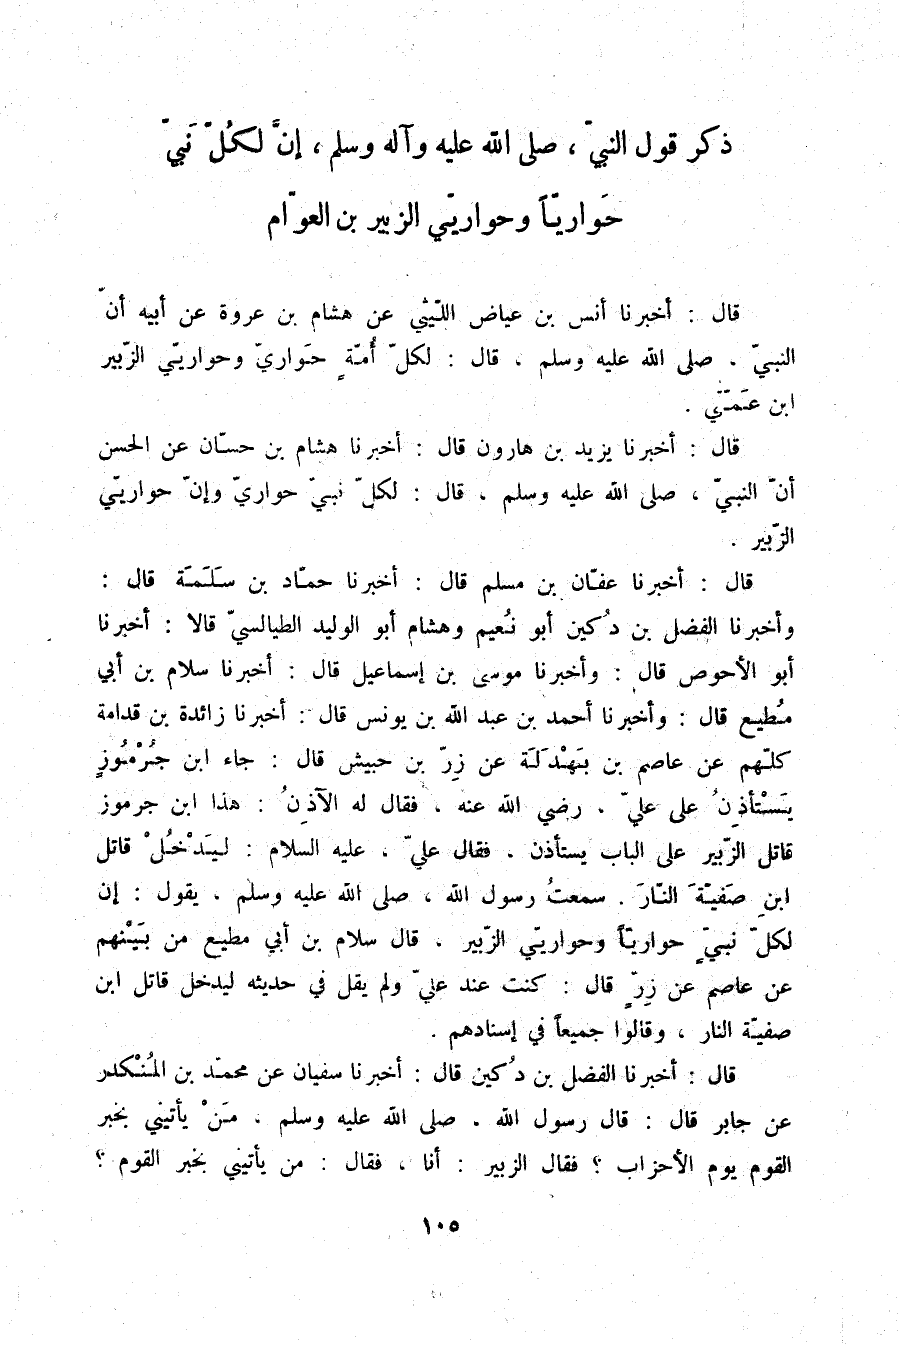 ذكر قول النبيّ ، صلى الله عليه وآله وسلم ، إنَّ لكُلّ نَبيّ
حَواريّاً وحواريّي الزبير بن العوّام
قال : أخبرنا أنس بن عياض اللّيثي عن هشام بن عروة عن أبيه أنّ
النبيّ ، صلى الله عليه وسلم ، قال : لكلّ أُمّةٍ حَواريّ وحواريّي الزّبير
ابن عَمّتي .
قال : أخبرنا يزيد بن هارون قال : أخبرنا هشام بن حسّان عن الحسن
أنّ النبيّ ، صلى الله عليه وسلم ، قال : لكلّ نبيّ حواريّ وإنّ حواريّي
الزّبير .
قال : أخبرنا عفّان بن مسلم قال : أخبرنا حمّاد بن سَلَمَة قال :
وأخبرنا الفضل بن دُكين أبو نُعيم وهشام أبو الوليد الطيالسيّ قالا : أخبرنا
أبو الأحوص قال : وأخبرنا موسى بن إسماعيل قال : أخبرنا سلام بن أبي
مُطيع قال : وأخبرنا أحمد بن عبد الله بن يونس قال : أخبرنا زائدة بن قدامة
كلّهم عن عاصم بن بَهْدَلَة عن زِرّ بن حبيش قال : جاء ابن جُرْمُوزٍ
يَسْتأذِنُ على عليّ ، رضي الله عنه ، فقال له الآذِنُ : هذا ابن جرموز
قاتل الزّبير على الباب يستأذن ، فقال عليّ ، عليه السلام : لِيَدْخُلْ قاتل
ابنِ صَفيّةَ النّارَ . سمعتُ رسول الله ، صلى الله عليه وسلم ، يقول : إن
لكلّ نبيّ حواريّاً وحواريّي الزّبير ، قال سلام بن أبي مطيع من بَيْنهم
عن عاصم عن زِرّ قال : كنت عند عليّ ولم يقل في حديثه ليدخل قاتل ابن
صفيّة النار ، وقالوا جميعاً في إسنادهم .
قال : أخبرنا الفضل بن دُكين قال : أخبرنا سفيان عن محمّد بن المُنْكدر
عن جابر قال : قال رسول الله ، صلى الله عليه وسلم ، مَنْ يأتيني بخبر
القوم يوم الأحزاب ؟ فقال الزبير : أنا ، فقال : من يأتيني بخبر القوم ؟
١٠٥